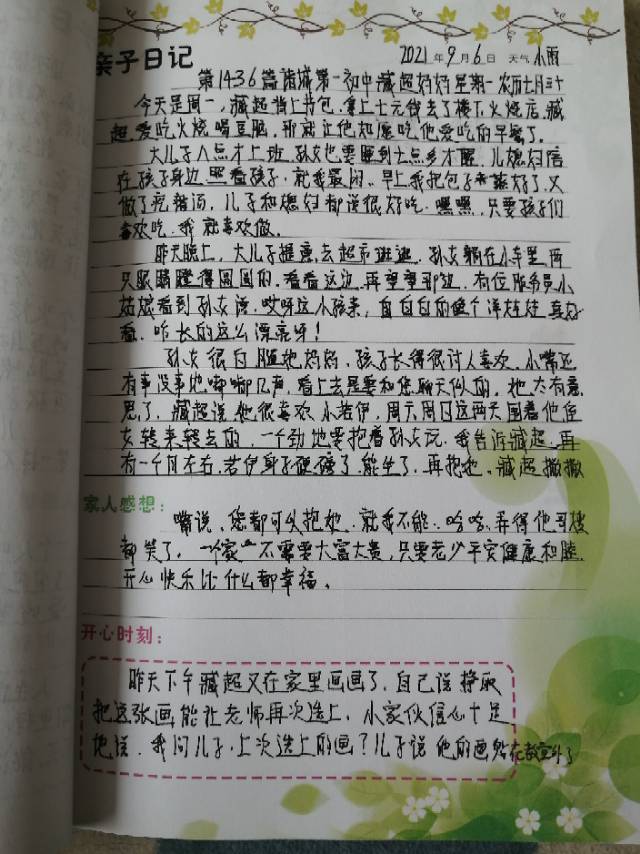 亲子日记
2021年9月6日 天气 小雨
第1436篇诸城第一初中臧超妈妈星期一农历七月三十
今天是周一,臧超背上书包,拿上十元钱去了楼下火烧店,臧
超爱吃火烧喝豆脑,那就让他如愿吃他爱吃的早餐了。
大儿子八点才上班,孙女也要睡到七点多才醒,儿媳妇陪
在孩子身边照看孩子,就我最闲。早上我把包子蒸好了,又
做了疙瘩汤,儿子和媳妇都说很好吃,嘿嘿,只要孩子们
喜欢吃,我就喜欢做。
昨天晚上,大儿子提意去超市逛逛,孙女躺在小车里,两
只眼睛瞪得圆圆的,看看这边,再望望那边,有位服务员小
姑娘看到孙女说,哎呀这小孩来,白白白的像个洋娃娃,真好
看,咋长的这么漂亮呀!
孙女很白随她妈妈,孩子长得很讨人喜欢,小嘴还
有事没事地嘟嘟几声,看上去是要和您聊天似的,她太有意
思了,臧超说他很喜欢小若伊,周六周日这两天围着他侄
女转来转去的,一个劲地要抱着孙女玩,我告诉臧超,再
有一个月左右,若伊身子硬磅了,能坐了,再抱她。臧超撇撇
家人感想:
嘴说,您都可以抱她,就我不能,哈哈,弄得他哥嫂
都笑了,一个家一不需要大富大贵,只要老少平安健康和睦
开心快乐比什么都幸福。
开心时刻:
昨天下午臧超又在家里画画了,自己说挣取
把这张画能让老师再次选上,小家伙信心十足
地说,我问儿子,上次选上的画?儿子说他的画贴在教室外了